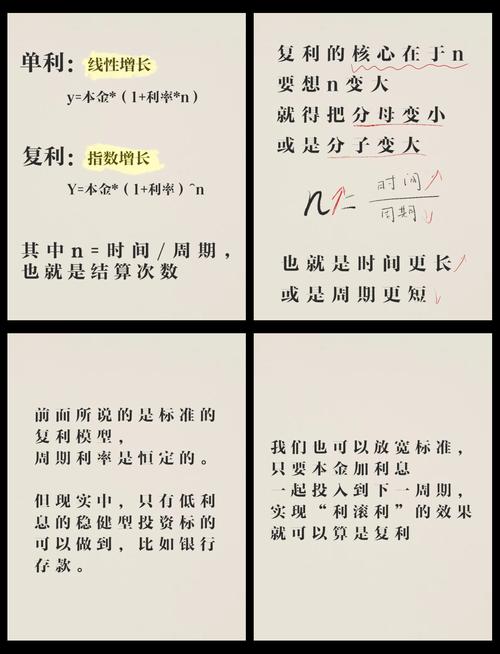 单利：线性增长
y=本金*（1+利率*n）
复利：指数增长
Y=本金*（1+利率）^n
其中n=时间/周期，
也就是结算次数
复利的核心在于n
要想n变大
就得把分母变小
或是分子变大
n↑=时间↑/周期↓
也就是时间更长↑
或是周期更短↓
前面所说的是标准的
复利模型，
周期利率是恒定的。
但现实中，只有低利
息的稳健型投资标的
可以做到，比如银行
存款。
我们也可以放宽标准，
只要本金加利息
一起投入到下一周期，
实现“利滚利”的效果
就可以算是复利